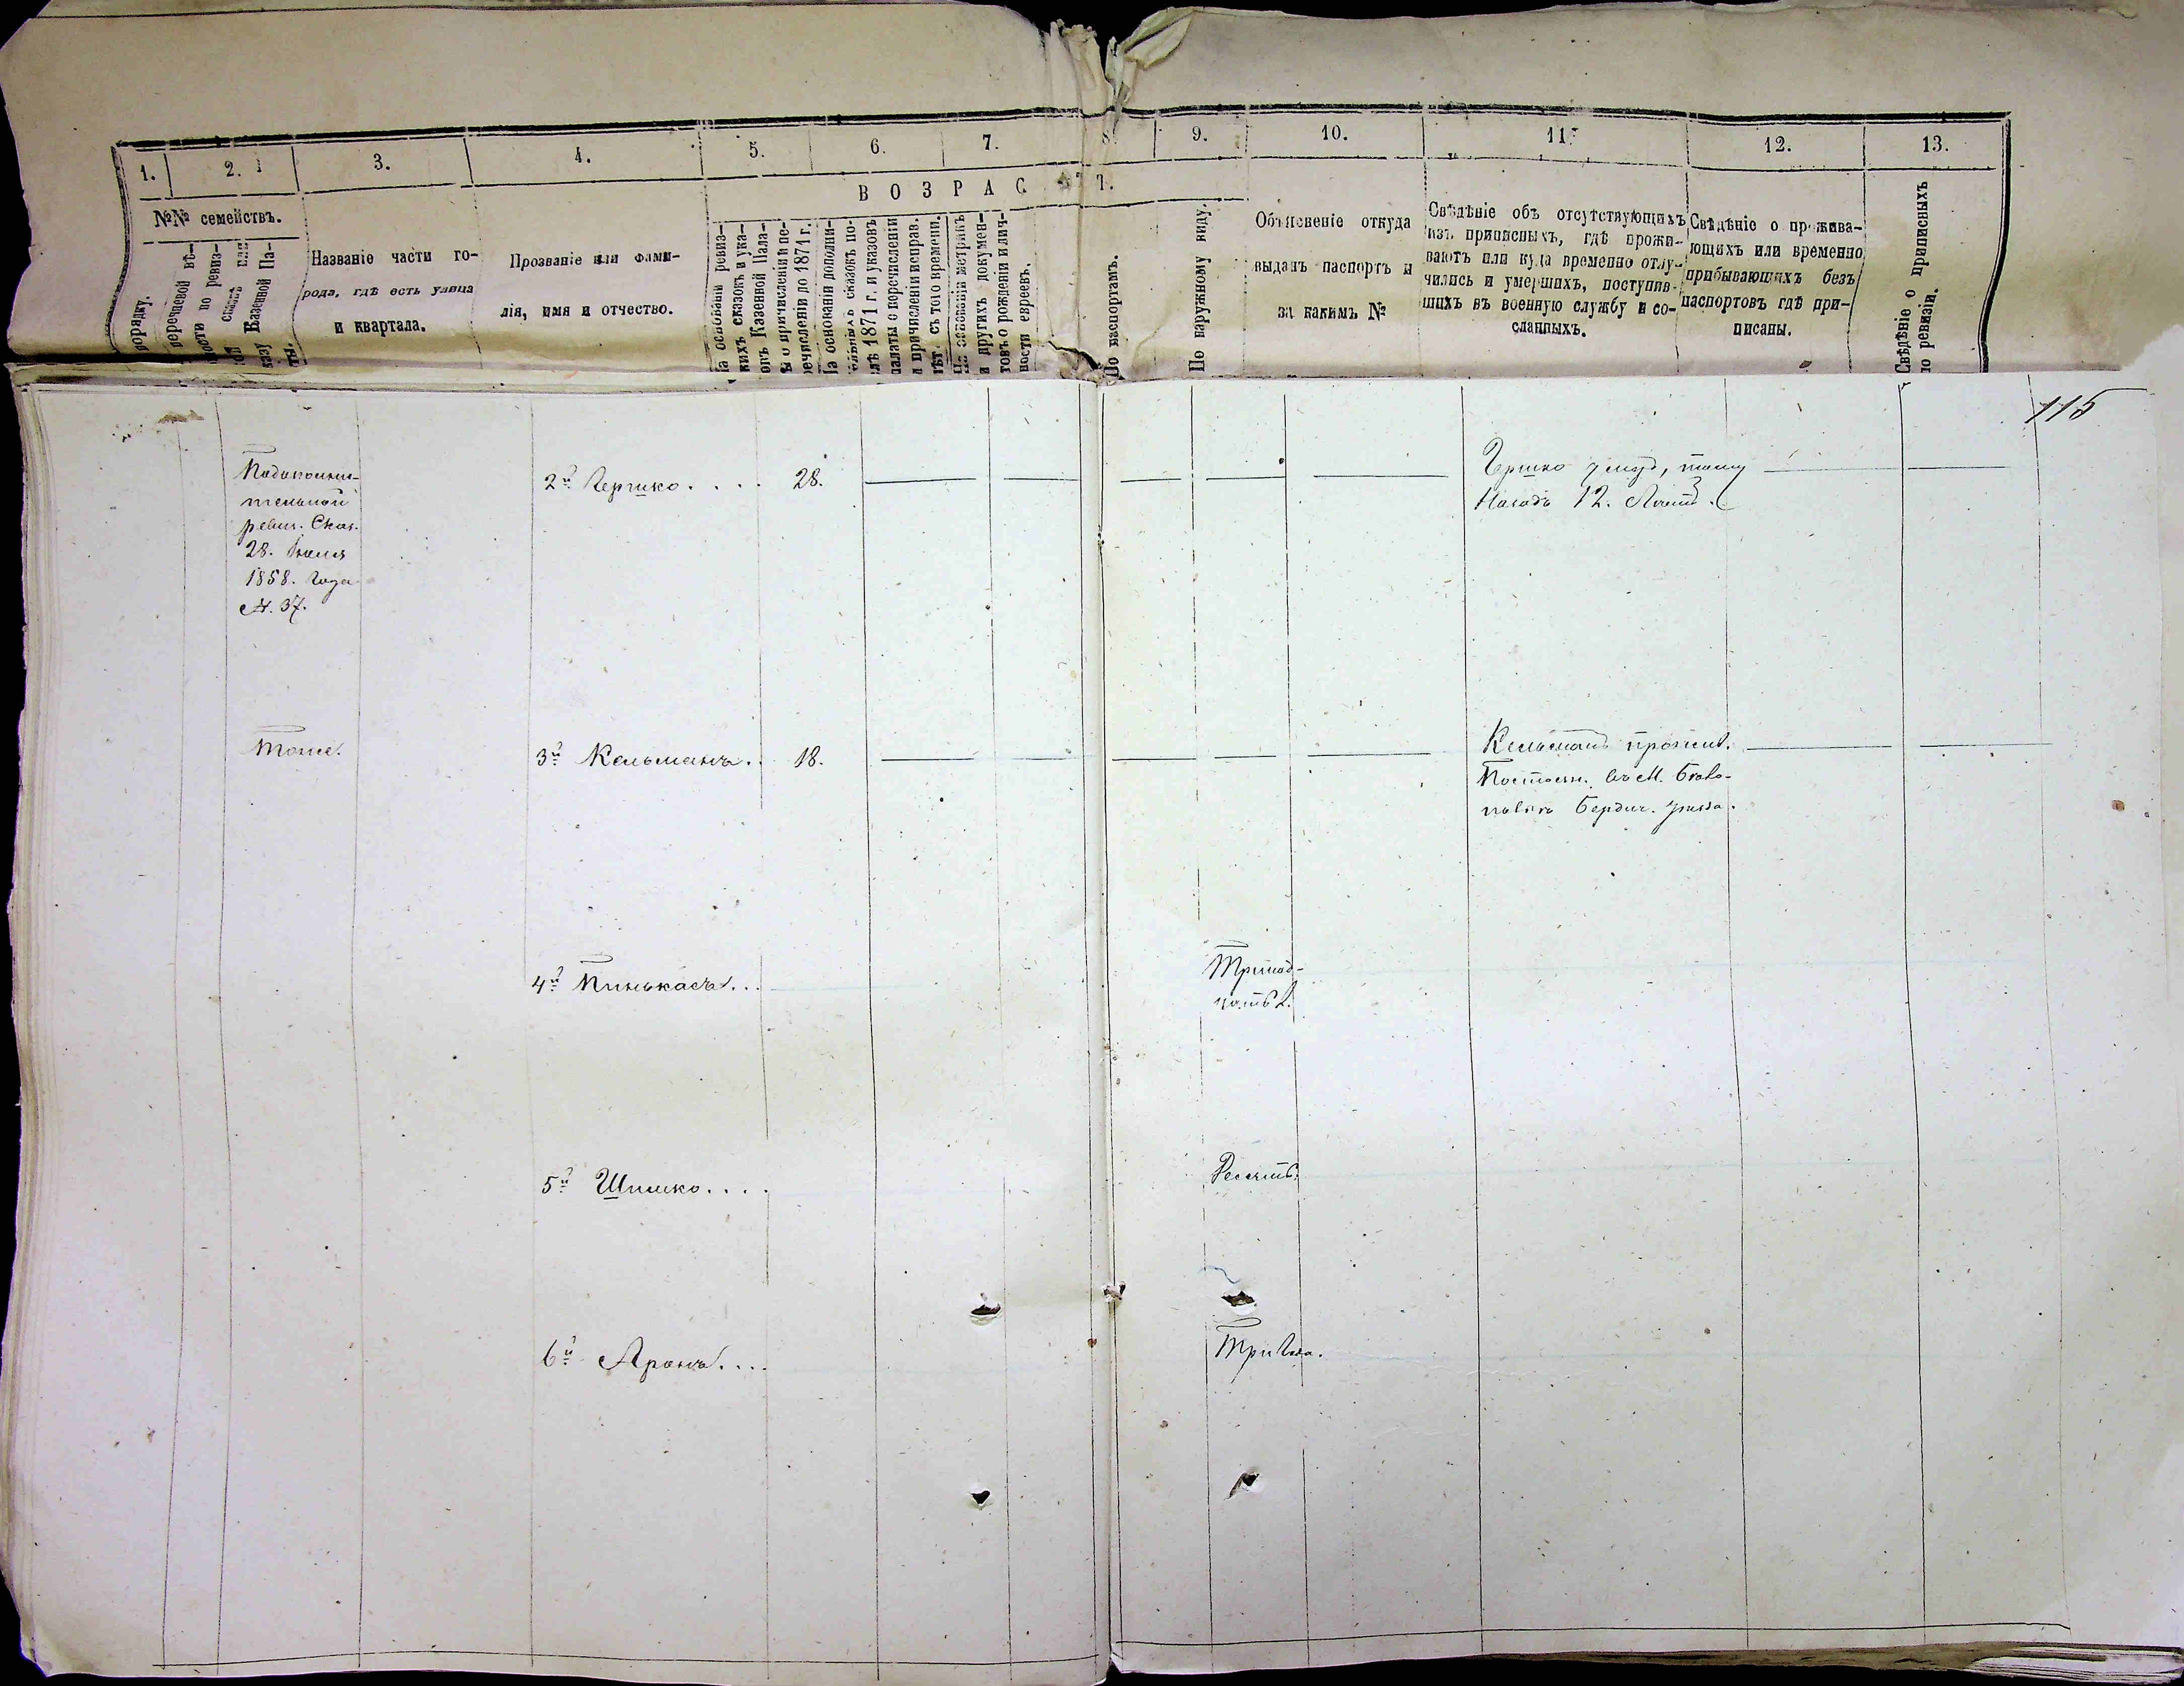 1.
2.
3.
4.
5.
6.
7.
8.
9.
10.
11.
12.
13.
ВОЗРАСТ.
№№ семействъ.
порядку.
перечневой вѣ-
мости по ревиз-
ской сказкѣ или
указу Казенной Па-
ты.
Названіе части го-
рода, гдѣ есть улица
и квартала.
Прозваніе или фами-
лія, имя и отчество.
На основаніи ревиз-
скихъ сказокъ и ука-
зовъ Казенной Пала-
ты о причисленіи и пе-
речисленіи до 1871 г.
На основаніи дополни-
тельныхъ сказокъ по-
слѣ 1871 г. и указовъ
палаты о перечисленіи
и причисленіи исправ.
лѣт. съ того времени.
На основаніи метрикъ
и другихъ докумен-
товъ о рожденіи и лич-
ности евреевъ.
По паспортамъ.
По наружному виду.
Объясненіе откуда
выданъ паспортъ и
за какимъ №
Свѣдѣніе объ отсутствующихъ
изъ приписныхъ, гдѣ прожи-
ваютъ или куда временно отлу-
чились и умершихъ, поступив-
шихъ въ военную службу и со-
сланныхъ.
Свѣдѣніе о прожива-
ющихъ или временно
прибывающихъ безъ
паспортовъ гдѣ при-
писаны.
Свѣдѣніе о приписныхъ
по ревизіи.
115
Подополни-
тельной
ревиз. Сказ.
28. Іюля
1858. Года
№. 37.
2й Гершко.... 28.
Гершко умер, тому
Назадъ 12. Лѣтъ.
Тоже.
3й Кельманъ.. 18.
Кельманъ прожив.
Постоян. въ М.
Бердич. уѣзда.
4й Пинькасъ...
Тринад-
цать л.
5й Шимко....
Десять.
6й Аронъ....
Три Года.